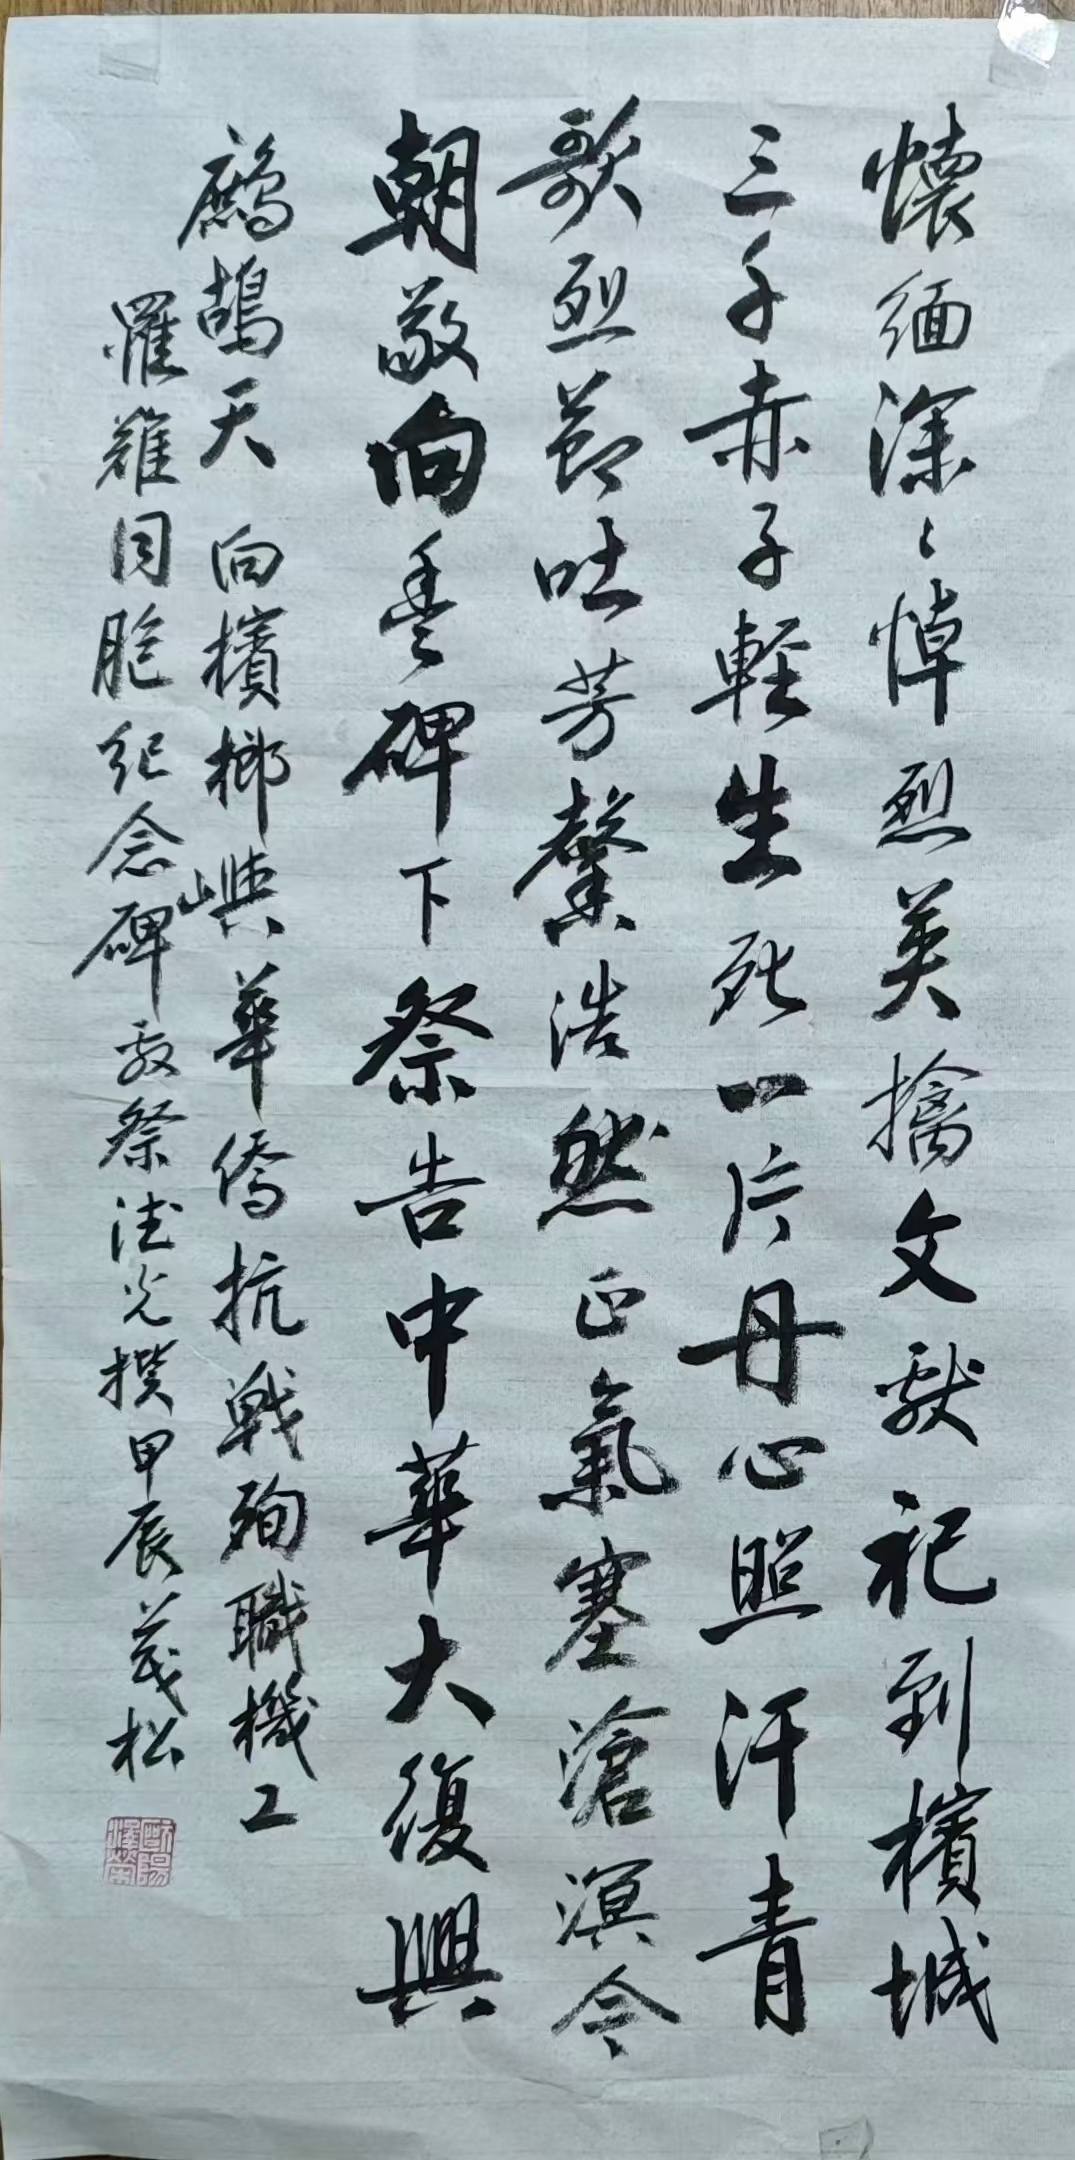 懷緬深〻悼烈英擒文獻祀到檳城
三千赤子輕生死一片丹心照汗青
歌烈節吐芳馨浩然正氣塞滄溟今
朝敬向豐碑下祭告中華大復興
鷓鴣天 向檳榔嶼華僑抗戰殉職機工
羅難同胞紀念碑敬祭 德光撰 甲辰 茂松